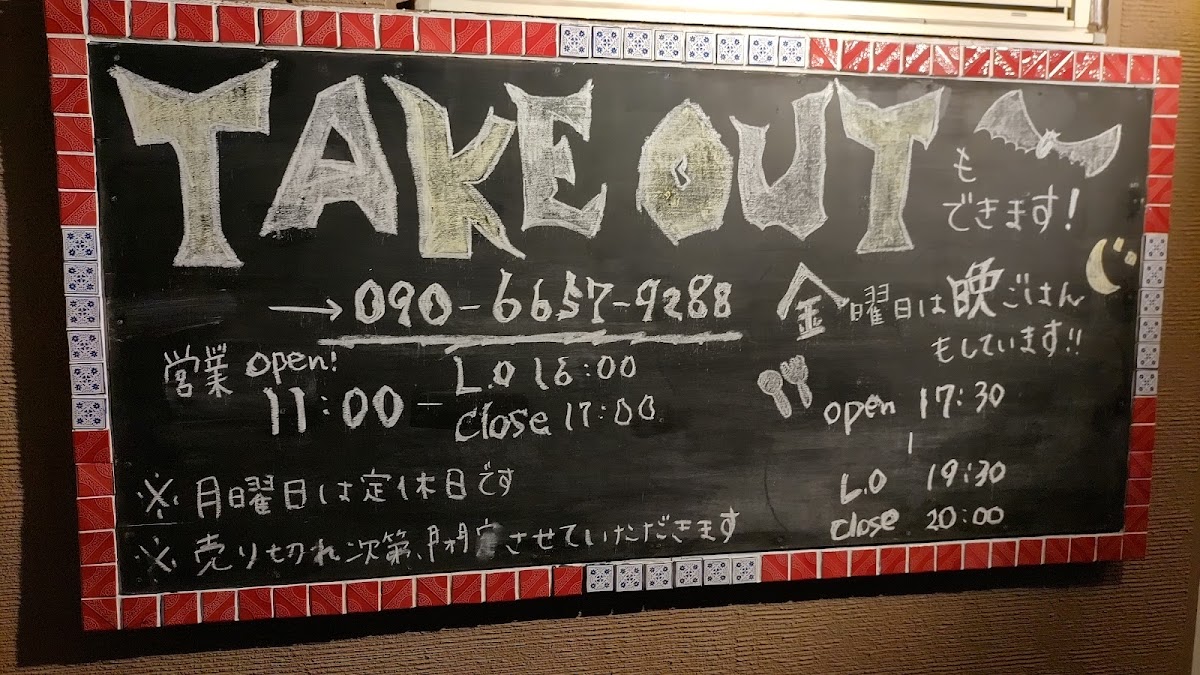 TAKE OUT
も
できます!
→090-6657-9288
営業 open!
11:00 - L.O 16:00
close 17:00
※月曜日は定休日です
※売り切れ次第、閉店させていただきます
金曜日は晩ごはん
もしています!!
open 17:30
|
L.O 19:30
close 20:00